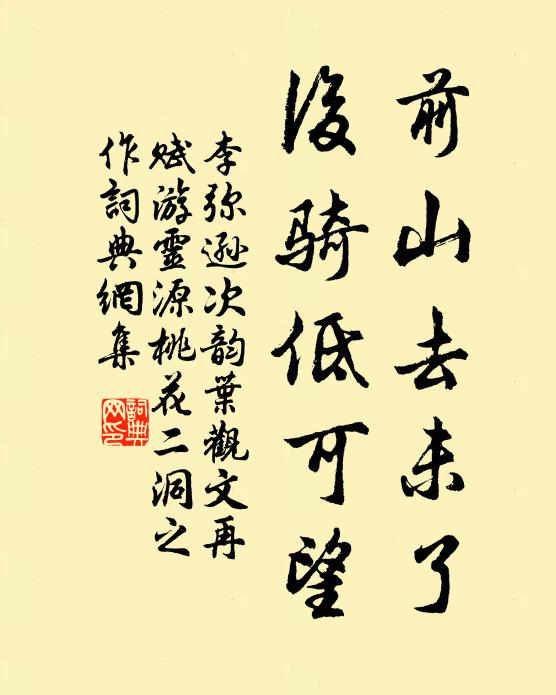 前山去未了
後骑低可望
李弥遜次韵葉觀文再
赋游靈源桃花二洞之
作詞典網集
詞典
网印